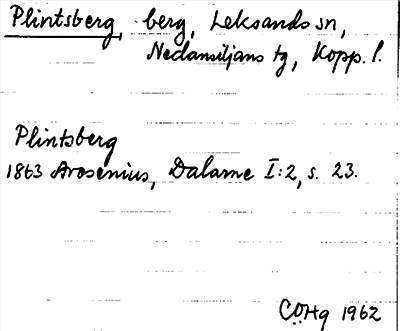 Plintsberg, berg, Leksands sn,
Nedansiljans tg, Kopp. l.
Plintsberg
1863 Arosenius, Dalarne I:2, s. 23.
COHg 1962